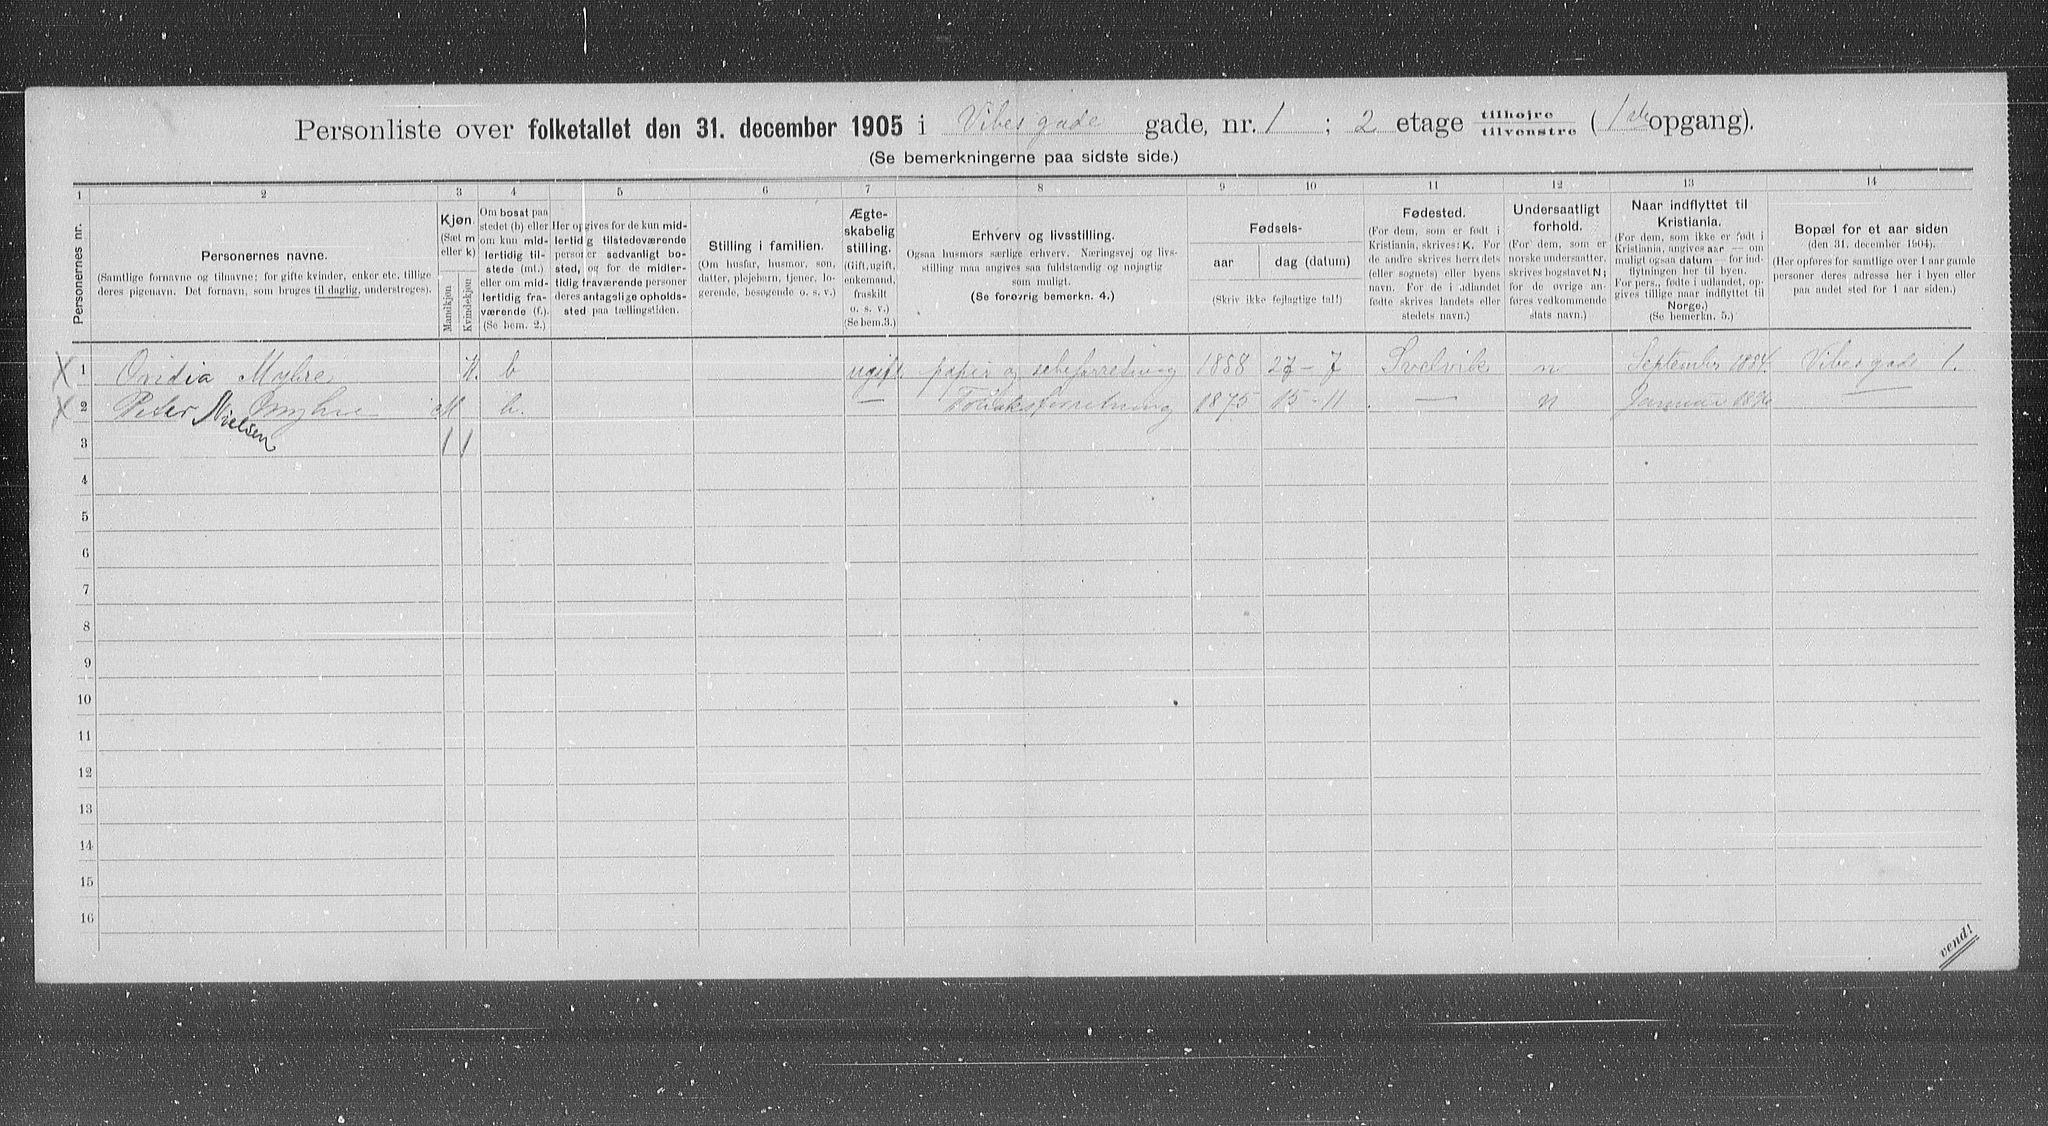 Personliste over folketallet den 31. december 1905 i Vibesgade gade, nr. 1 ; 2 etage tilhøjre/tilvenstre (1ste opgang).
(Se bemerkningerne paa sidste side.)
1 2 3 4 5 6 7 8 9 10 11 12 13 14
Personernes nr.
Personernes navne.
(Samtlige fornavne og tilnavne; for gifte kvinder, enker etc. tillige
deres pigenavn. Det fornavn, som bruges til daglig, understreges).
Kjøn.
(Sæt m
eller k)
Mandkjøn
Kvindekjøn
Om bosat paa
stedet (b) eller
om kun mid-
lertidig til-
stede (mt.)
eller om mid-
lertidig fra-
værende (f.).
(Se bem. 2.)
Her opgives for de kun mid-
lertidig tilstedeværende
personer sedvanligt bo-
sted, og for de midler-
tidig fraværende personer
deres antagelige opholds-
sted paa tællingstiden.
Stilling i familien.
(Om husfar, husmor, søn,
datter, plejebarn, tjener, lo-
gerende, besøgende o. s. v.)
Ægte-
skabelig
stilling.
(Gift, ugift,
enkemand,
fraskilt
o. s. v.)
(Se bem. 3.)
Erhverv og livsstilling.
Ogsaa husmors særlige erhverv. Næringsvej og livs-
stilling maa angives saa fuldstændig og nøjagtig
som muligt.
(Se forøvrig bemerkn. 4.)
Fødsels-
aar
dag (datum)
(Skriv ikke fejlagtige tal!)
Fødested.
(For dem, som er født i
Kristiania, skrives: K. For
de andre skrives herredets
(eller sognets) eller byens
navn. For de i udlandet
fødte skrives landets eller
stedets navn.)
Undersaatligt
forhold.
(For dem, som er
norske undersaatter,
skrives bogstavet N;
for de øvrige an-
føres vedkommende
stats navn.)
Naar indflyttet til
Kristiania.
(For dem, som ikke er født i
Kristiania, angives aar — om
muligt ogsaa datum — for ind-
flytningen her til byen.
For pers., fødte i udlandet, op-
gives tillige naar indflyttet til
Norge.)
(Se bemerkn. 5.)
Bopæl for et aar siden
(den 31. december 1904).
(Her opføres for samtlige over 1 aar gamle
personer deres adresse her i byen eller
paa andet sted for 1 aar siden.)
X 1 Ovidia Myhre K. b ugift papir og sebeforretning 1858 27 - 7 Svelvik n September 1884. Vibesgade 1.
X 2 Peter Nielsen Myhre M b. — forretning 1875 15 - 11 — n Januar —
3 1 1
4
5
6
7
8
9
10
11
12
13
14
15
16
vend!